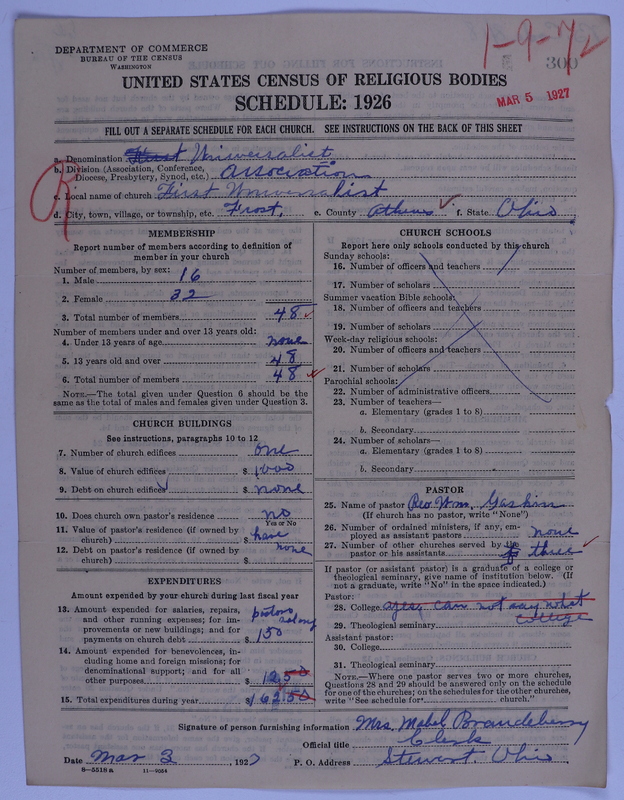 1-9-72
DEPARTMENT OF COMMERCE
BUREAU OF THE CENSUS
WASHINGTON
300
MAR 5 1927
UNITED STATES CENSUS OF RELIGIOUS BODIES
SCHEDULE: 1926
FILL OUT A SEPARATE SCHEDULE FOR EACH CHURCH. SEE INSTRUCTIONS ON THE BACK OF THIS SHEET
a. Denomination First Universalist
b. Division (Association, Conference, Diocese, Presbytery, Synod, etc.) Association
c. Local name of church First Universalist
d. City, town, village, or township, etc. Frost, e. County Athens f. State Ohio
MEMBERSHIP
Report number of members according to definition of
member in your church
Number of members, by sex:
1. Male 16
2. Female 32
3. Total number of members 48
Number of members under and over 13 years old:
4. Under 13 years of age none
5. 13 years old and over 48
6. Total number of members 48
NOTE.—The total given under Question 6 should be
same as the total of males and females given under Question 3.
CHURCH BUILDINGS
See instructions, paragraphs 10 to 12
7. Number of church edifices one
8. Value of church edifices $ 1000
9. Debt on church edifices $ none
10. Does church own pastor's residence no
Yes or No
11. Value of pastor's residence (if owned by
church) $ have
12. Debt on pastor's residence (if owned by none
church) $
EXPENDITURES
Amount expended by your church during last fiscal year
13. Amount expended for salaries, repairs, pastors
and other running expenses; for im- salary
provements or new buildings; and for
payments on church debt $ 150
14. Amount expended for benevolences, in-
cluding home and foreign missions; for
denominational support; and for all
other purposes $ 12.50
15. Total expenditures during year $ 162.50
CHURCH SCHOOLS
Report here only schools conducted by this church
Sunday schools:
16. Number of officers and teachers
17. Number of scholars
Summer vacation Bible schools:
18. Number of officers and teachers
19. Number of scholars
Week-day religious schools:
20. Number of officers and teachers
21. Number of scholars
Parochial schools:
22. Number of administrative officers
23. Number of teachers—
a. Elementary (grades 1 to 8)
b. Secondary
24. Number of scholars—
a. Elementary (grades 1 to 8)
b. Secondary
PASTOR
25. Name of pastor Rev Wm. Gaskin
(If church has no pastor, write "None")
26. Number of ordained ministers, if any, em-
ployed as assistant pastors none
27. Number of other churches served by the
pastor or his assistants three
If pastor (or assistant pastor) is a graduate of a college or
theological seminary, give name of institution below. (If
not a graduate, write "No" in the space indicated.)
Pastor:
28. College yes, can not say what
29. Theological seminary college
Assistant pastor:
30. College
31. Theological seminary
NOTE.—Where one pastor serves two or more churches,
Questions 28 and 29 should be answered only on the schedule
for one of the churches; on the schedules for the other churches,
write "See schedule for church."
Signature of person furnishing information Mrs. Mabel Brandeberry
Official title Clerk
Date Mar 3, 1927 P. O. Address Stewart, Ohio
8—5518 a 11—9054